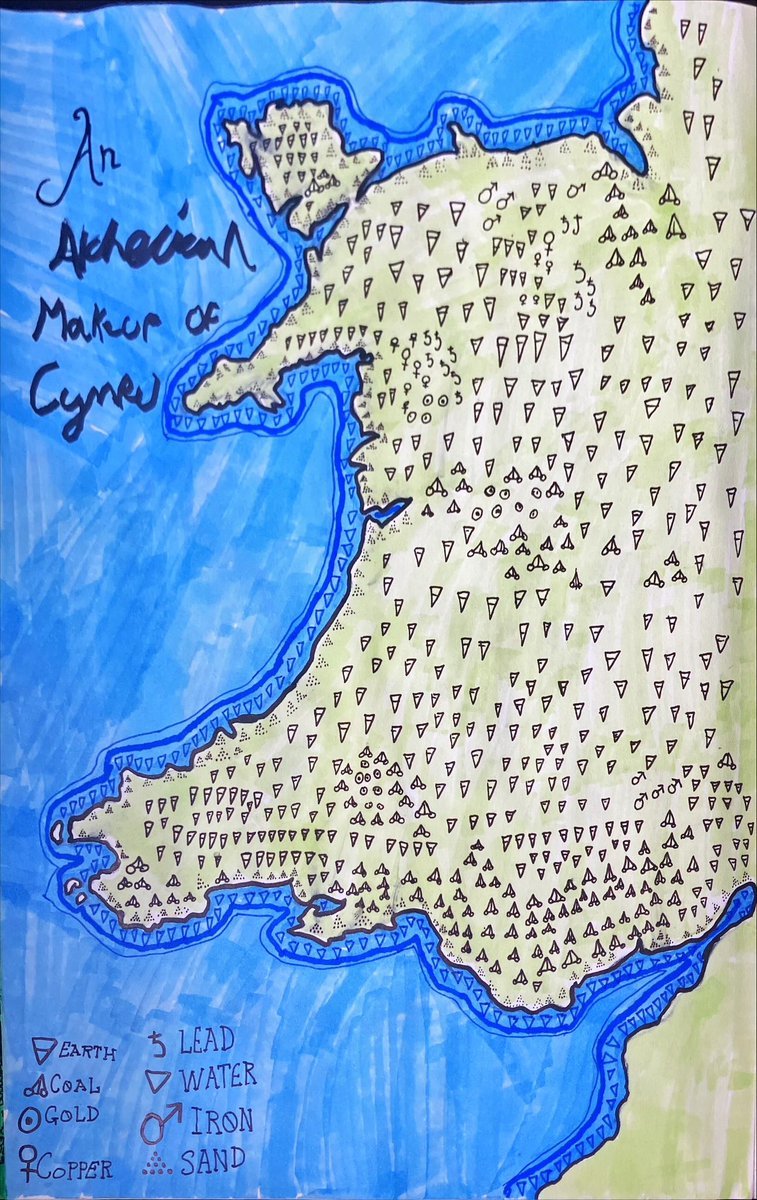 An
Alchemical
Makeup of
Cymru
EARTH
COAL
GOLD
COPPER
LEAD
WATER
IRON
SAND